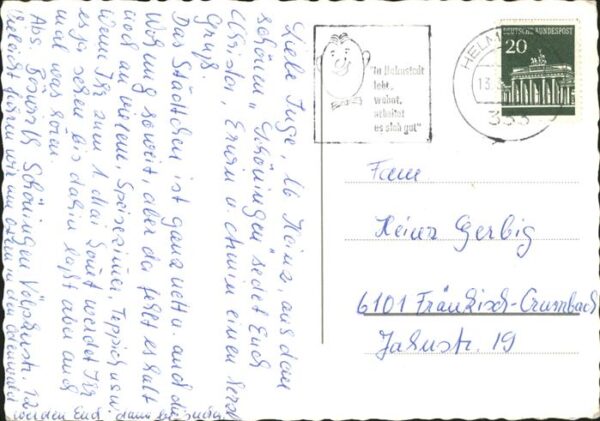 Liebe Inge, lb Heinz, aus dem
schönen "Schöningen" sendet Euch
Erwin u. einen
Gruß.
Das Städtchen ist ganz nett u. auch die
Wohnung soweit, aber da fehlt es halt
noch an vielem, Speisezimmer, Teppich usw
Wenn Ihr zum 1 Mai kommt werdet Ihr
es ja sehen bis dahin laßt aber auch
mal was hören.
Abs. Schöningen 12
Vielleicht fahren wir an Ostern in den
werden Euch dann besuchen
"In Helmstedt
lebt,
wohnt,
arbeitet
es sich gut"
HELM
13.
333
DEUTSCHE BUNDESPOST
20
Fam
Heinz Gerbig
6101 Fränkisch-Crumbach
Jahnstr. 19